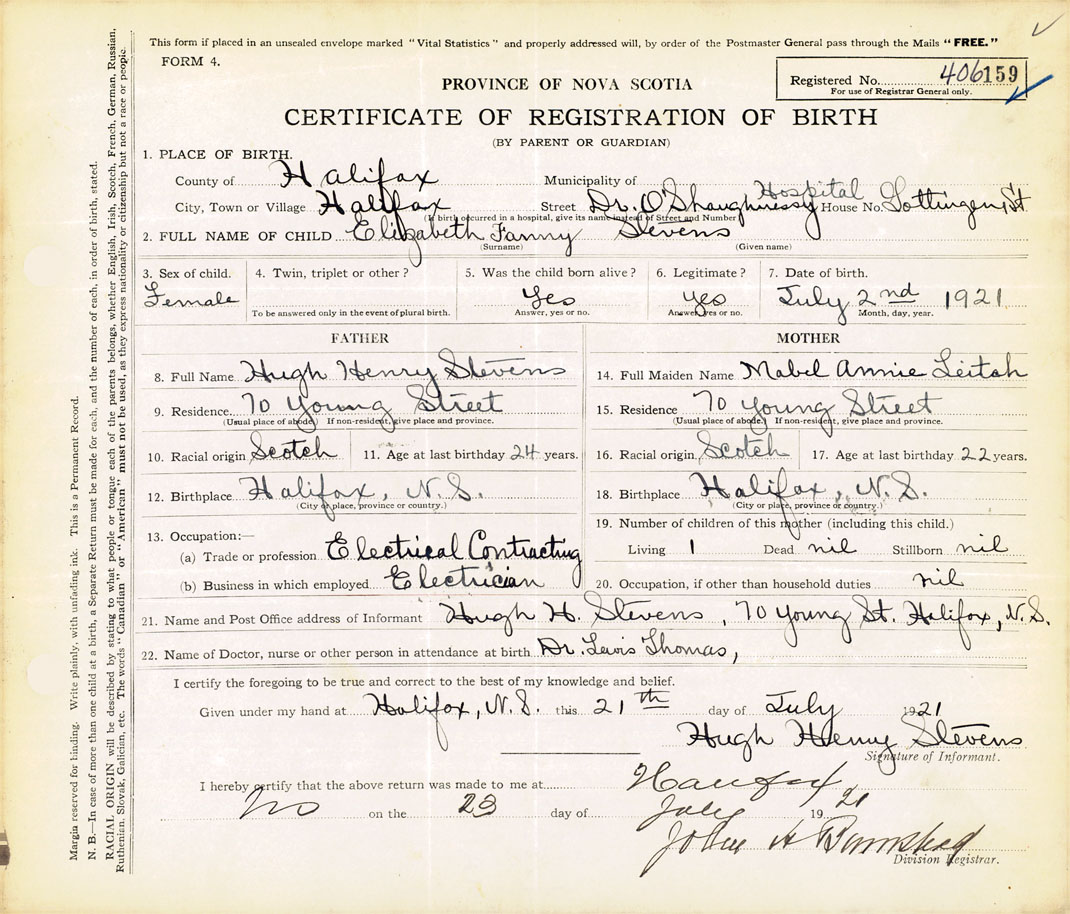 This form if placed in an unsealed envelope marked "Vital Statistics" and properly addressed will, by order of the Postmaster General pass through the Mails "FREE."
FORM 4.
Registered No. 406159
For use of Registrar General only.
PROVINCE OF NOVA SCOTIA
CERTIFICATE OF REGISTRATION OF BIRTH
(BY PARENT OR GUARDIAN)
1. PLACE OF BIRTH.
County of Halifax Municipality of
City, Town or Village Halifax Street Dr. O'Shaughnessy Hospital House No. Gottingen St
(If birth occurred in a hospital, give its name instead of Street and Number)
2. FULL NAME OF CHILD Elizabeth Fanny Stevens
(Surname) (Given name)
3. Sex of child. 4. Twin, triplet or other? 5. Was the child born alive? 6. Legitimate? 7. Date of birth.
Female Yes yes July 2nd 1921
To be answered only in the event of plural birth. Answer, yes or no. Answer, yes or no. Month, day, year.
FATHER
8. Full Name Hugh Henry Stevens
9. Residence 70 Young Street
(Usual place of abode.) If non-resident, give place and province.
10. Racial origin Scotch 11. Age at last birthday 24 years.
12. Birthplace Halifax, N.S.
(City or place, province or country.)
13. Occupation:—
(a) Trade or profession Electrical Contracting
(b) Business in which employed Electrician
MOTHER
14. Full Maiden Name Mabel Annie Leitch
15. Residence 70 Young Street
(Usual place of abode.) If non-resident, give place and province.
16. Racial origin Scotch 17. Age at last birthday 22 years.
18. Birthplace Halifax, N.S.
(City or place, province or country.)
19. Number of children of this mother (including this child.)
Living 1 Dead nil Stillborn nil
20. Occupation, if other than household duties nil
21. Name and Post Office address of Informant Hugh H. Stevens, 70 Young St. Halifax, N.S.
22. Name of Doctor, nurse or other person in attendance at birth Dr. Lewis Thomas,
I certify the foregoing to be true and correct to the best of my knowledge and belief.
Given under my hand at Halifax, N.S. this 21th day of July 1921
Hugh Henry Stevens
Signature of Informant.
I hereby certify that the above return was made to me at Halifax
on the 23 day of July 1921
John A
Division Registrar.
Margin reserved for binding. Write plainly, with unfading ink. This is a Permanent Record.
N. B.—In case of more than one child at a birth, a Separate Return must be made for each, and the number of each, in order of birth, stated.
RACIAL ORIGIN will be described by stating to what people or tongue each of the parents belongs, whether English, Irish, Scotch, French, German, Russian,
Ruthenian, Slovak, Galician, etc. The words "Canadian" or "American" must not be used, as they express nationality or citizenship but not a race or people.